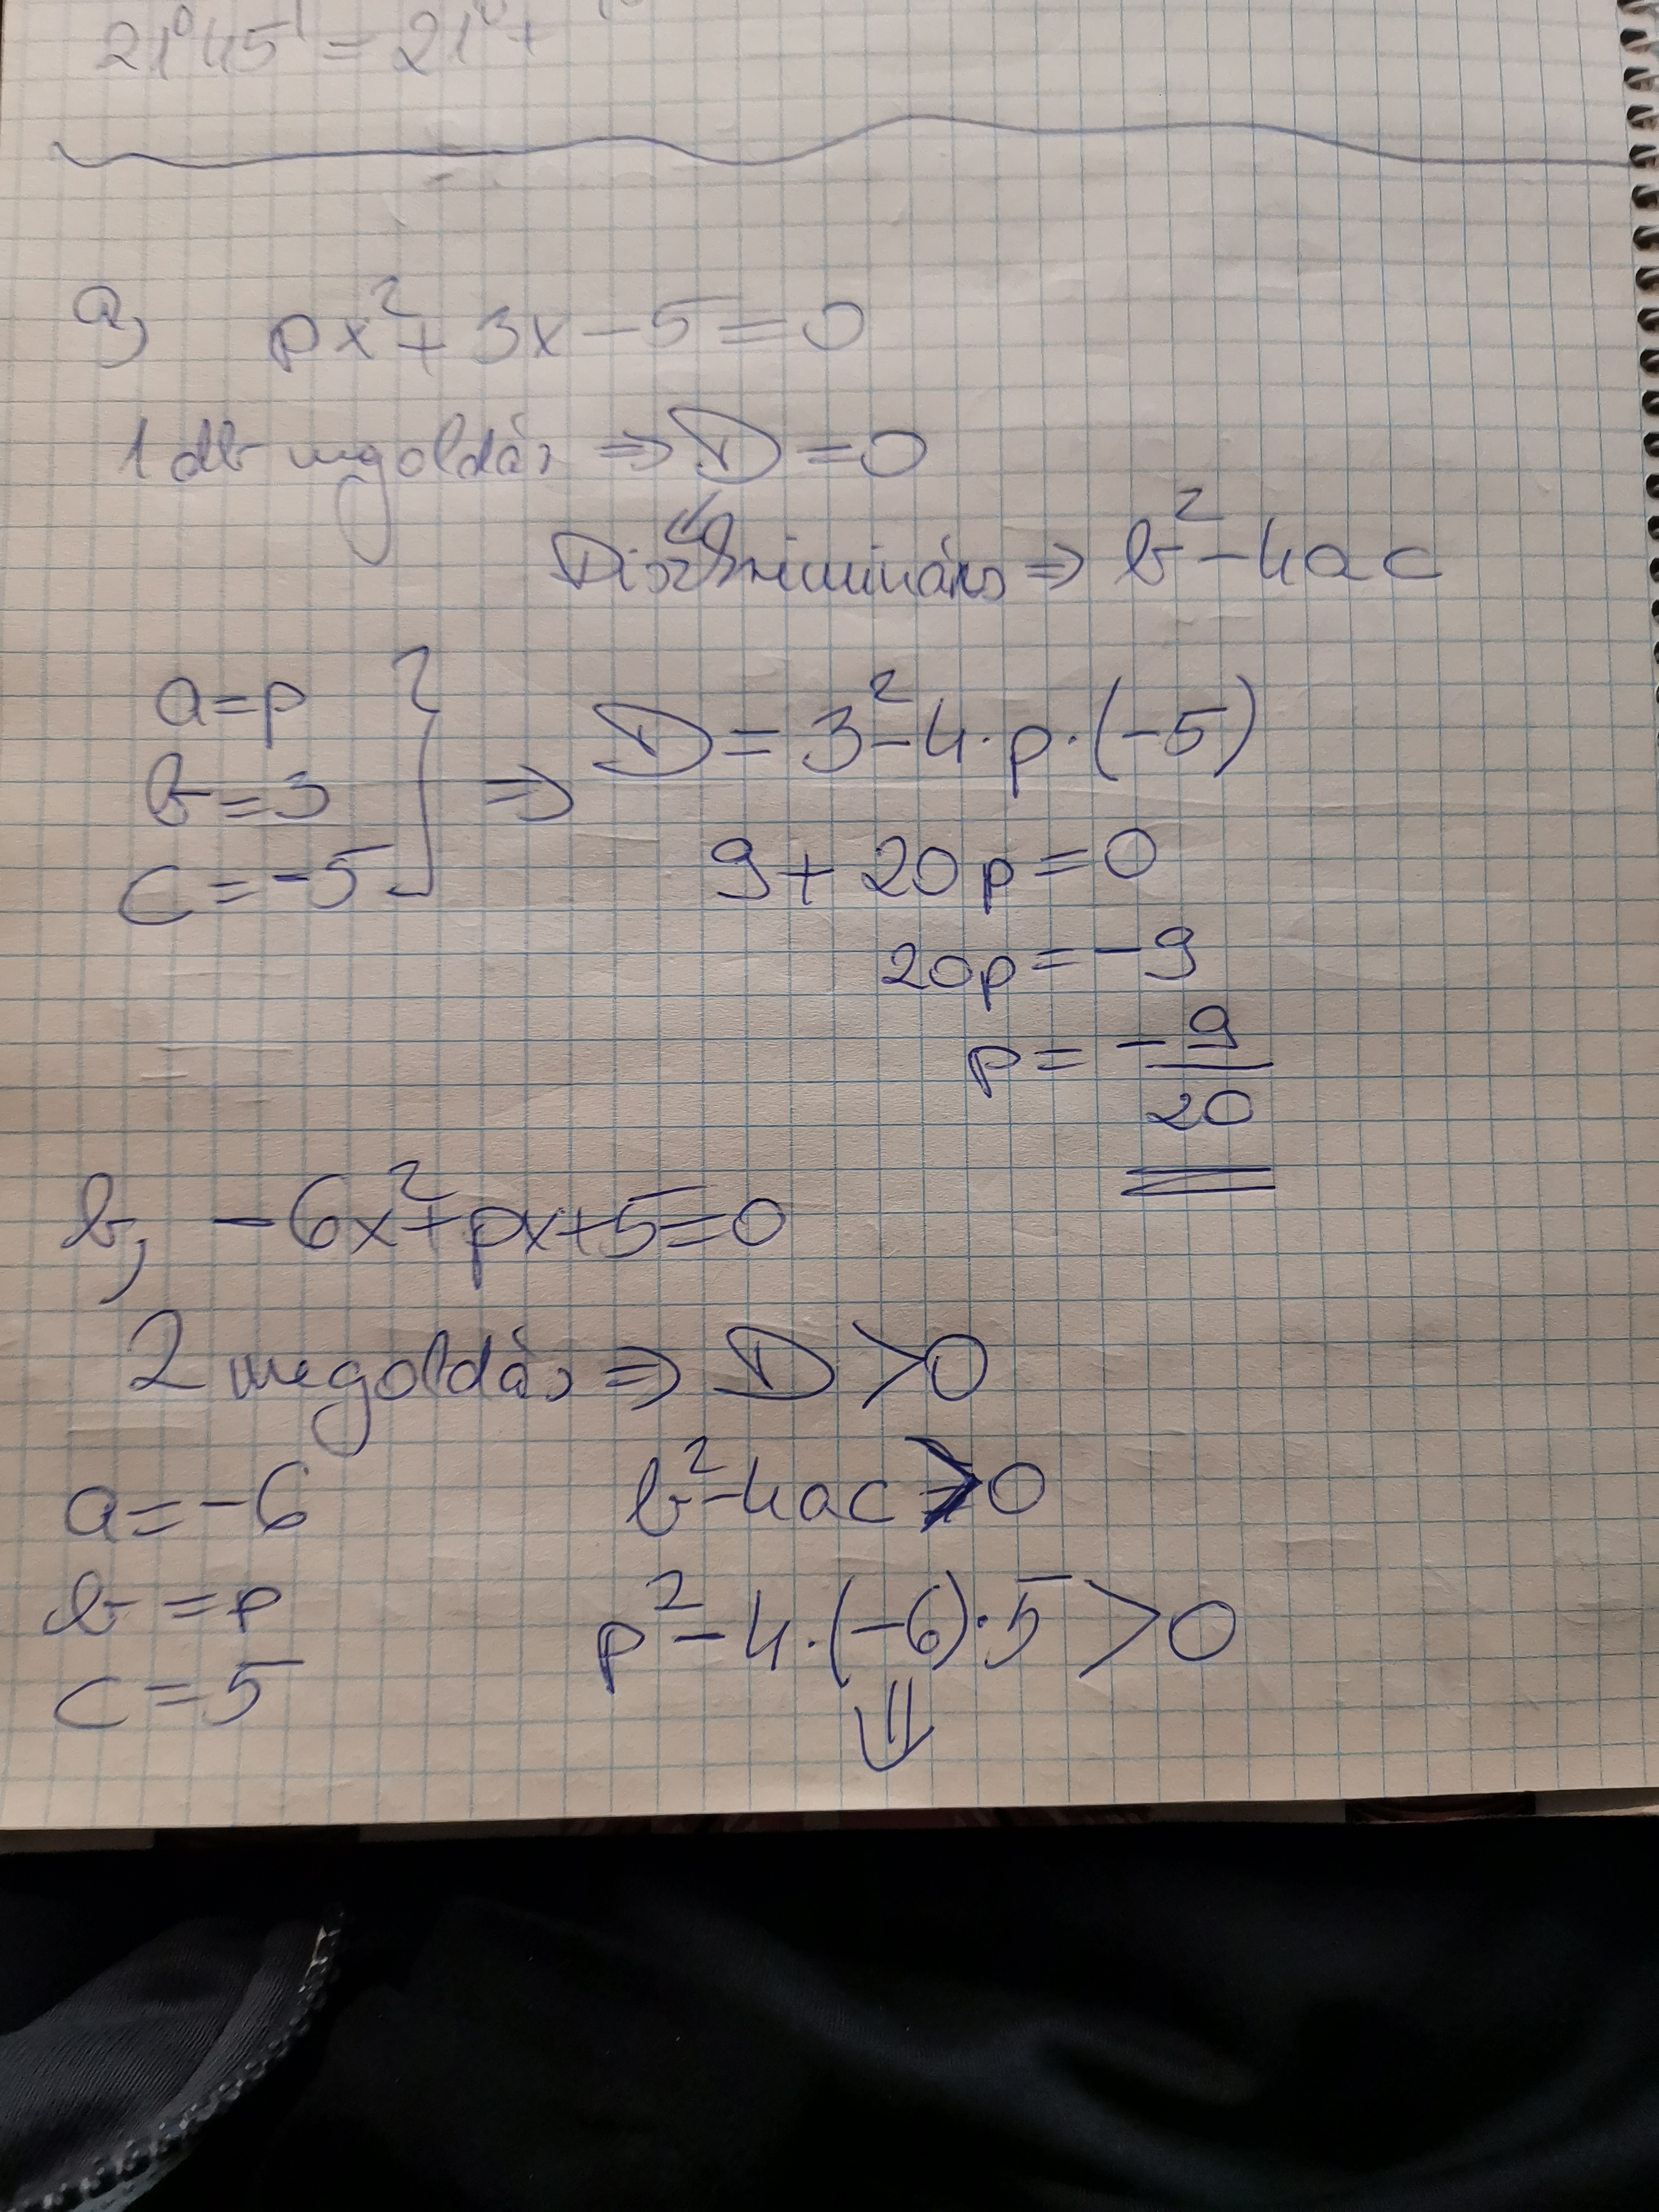 21°45' = 21° +
a, px² + 3x - 5 = 0
1 db megoldás ⇒ D = 0
Diszkrimináns ⇒ b² - 4ac
a = p
b = 3
c = -5
} ⇒ D = 3² - 4·p·(-5)
9 + 20p = 0
20p = -9
p = -9/20
b, -6x² + px + 5 = 0
2 megoldás ⇒ D > 0
a = -6
b² - 4ac > 0
b = p
p² - 4·(-6)·5 > 0
c = 5
⇓